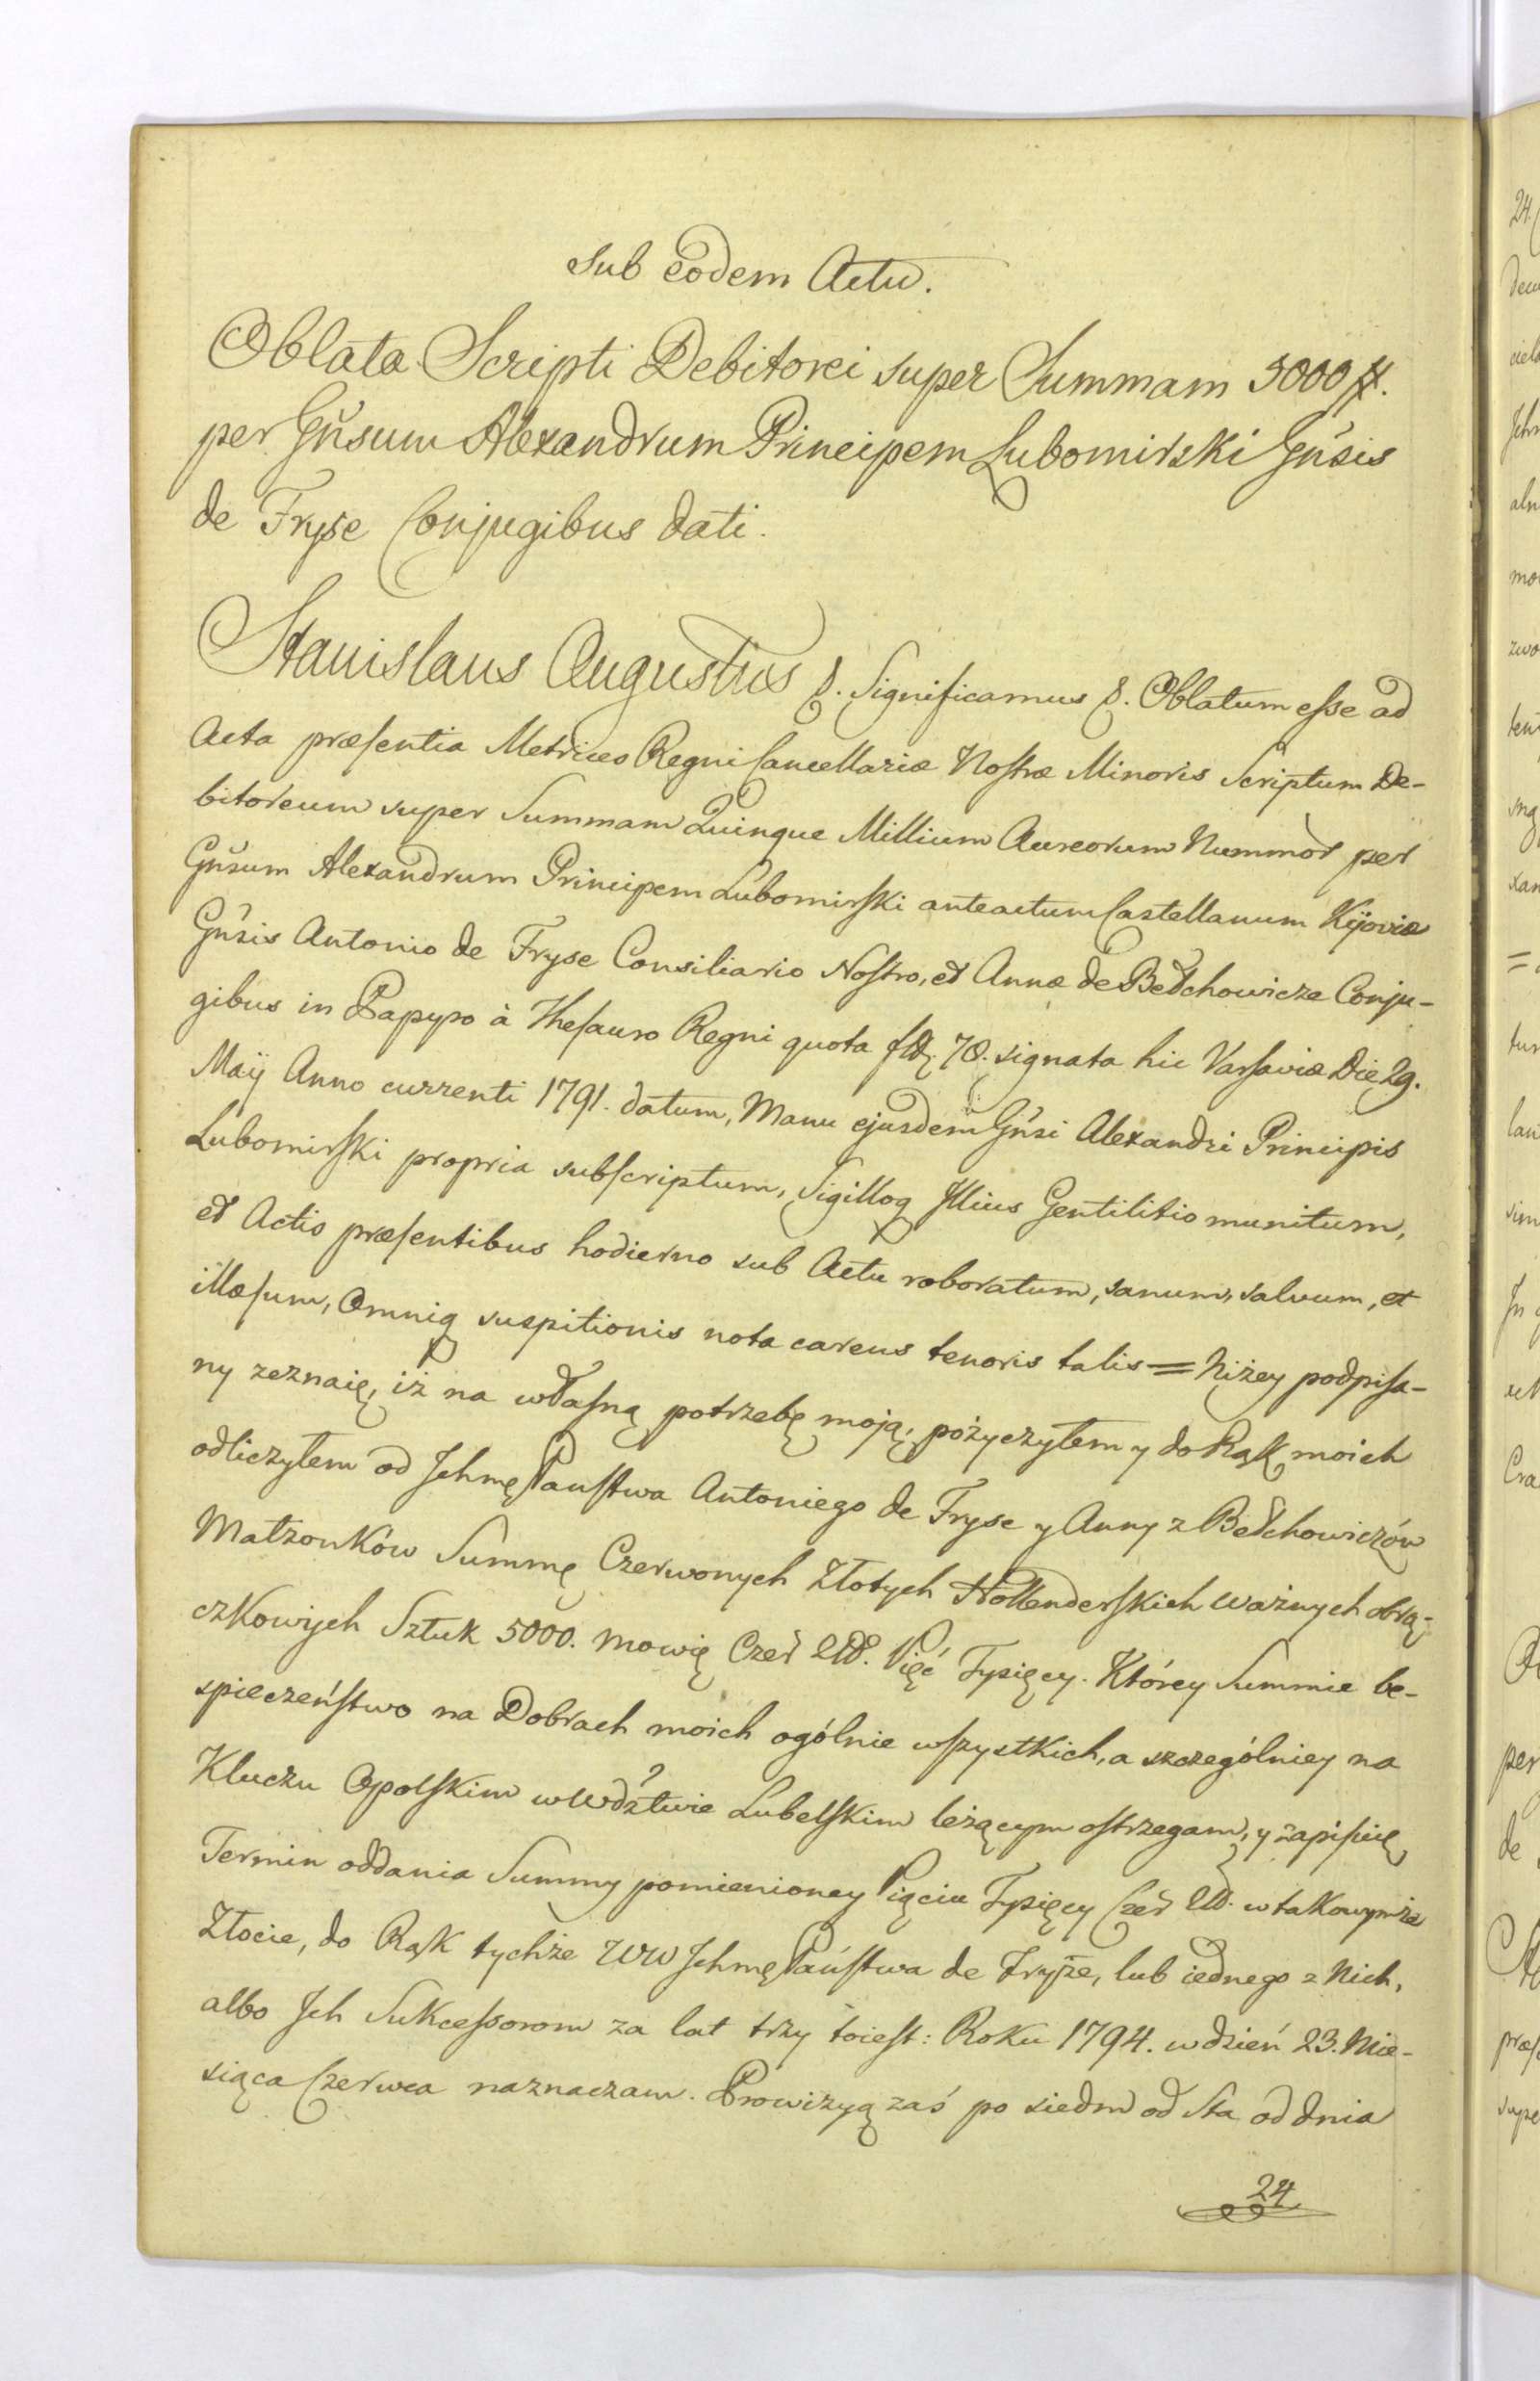 Sub eodem Actu.
Oblata Scripti Debitorei super Summam 5000 #.
per Gn̄sum Alexandrum Principem Lubomirski Gn̄sis
de Fryse Conjugibus dati.
Stanislaus Augustus &. Significamus &. Oblatum eſse ad
Acta præſentia Metrices Regni Cancellariæ Noſtræ Minoris Scriptum De-
bitoreum super Summam Quinque Millium Aureorum Nummor̄ per
Gn̄sum Alexandrum Principem Lubomirſki anteactum Castellanum Kijoviæ
Gn̄sis Antonio de Fryse Consiliario Noſtro, et Annæ de Bełchowicze Conju-
gibus in Papyro à Theſauro Regni quota 70. signata hic Varſaviæ Die 29.
Maÿ Anno currenti 1791. datum, Manu ejusdem Gn̄si Alexandri Principis
Lubomirſki propria subſcriptum, Sigilloq Illius Gentilitio munitum,
et Actis præſentibus hodierno sub Actu roboratum, sanum, salvum, et
illæſum, Omniq suspitionis nota carens tenoris talis = Niżey podpiſa-
ny zeznaię, iż na właſną potrzebę moią, pożyczyłem y do Rąk moich
odliczyłem od Jchmę Pańſtwa Antoniego de Fryse y Anny z Bełchowiczów
Małżonków Summę Czerwonych Złotych Hollenderſkich ważnych obrą-
czkowych Sztuk 5000. mowię Czer̄ Zł. Pięć Tysięcy. Którey Summie be-
spieczeńſtwo na Dobrach moich ogólnie wſzystkich, a szczególniey na
Kluczu Opolſkim w Wdztwie Lubelſkim leżącym oſtrzegam, y zapiſuię
Termin oddania Summy pomienioney Pięciu Tysięcy Czer̄ Zł. w takowymże
Złocie, do Rąk tychże WW Jchmę Pańſtwa de Fryze, lub iednego z Nich,
albo Jch Sukceſsorom za lat trzy toieſt: Roku 1794. w dzień 23. Mie-
siąca Czerwca naznaczam. Prowizyą zaś po siedm od Sta od dnia
24